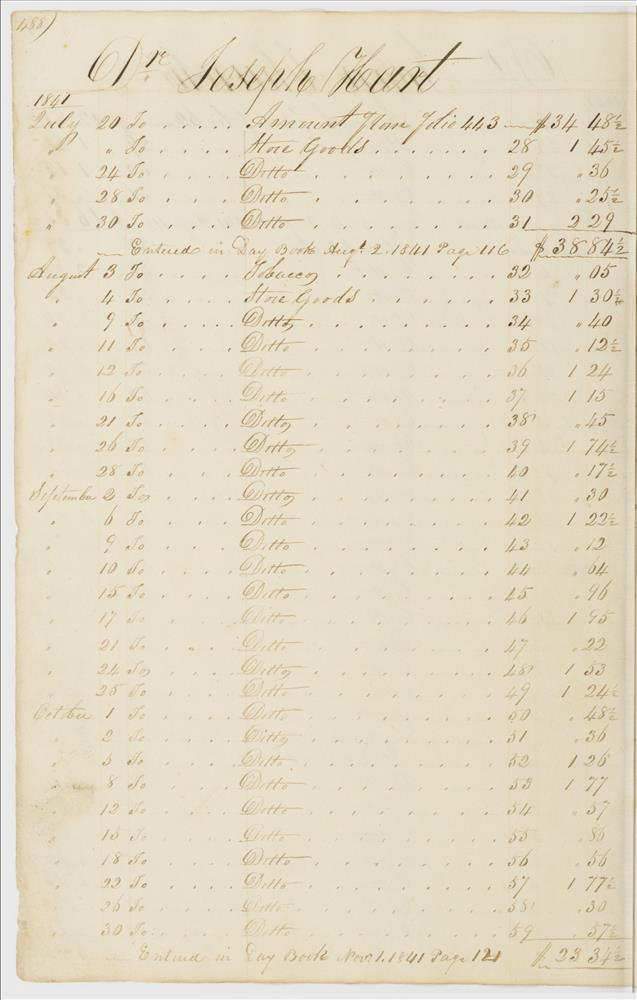 488)
Dr. Joseph Hart
1841
July 20 To . . . . . Amount from folio 443 — $34 48½
" " To . . . . . Store Goods . . . . . . . 28 1 45½
24 To . . . . Ditto . . . . . . . . . 29 " 36
" 28 To . . . . Ditto . . . . . . . . . 30 " 25½
" 30 To . . . . Ditto . . . . . . . . . 31 2 29
— Entered in Day Book Augt. 2. 1841 Page 116 $38 84½
August 3 To . . . . . Tobacco . . . . . . . . 32 " 05
" 4 To . . . . Store Goods . . . . . . . 33 1 30½
" 9 To . . . . Ditto . . . . . . . . . 34 " 40
" 11 To . . . . Ditto . . . . . . . . . 35 " 12½
" 12 To . . . . Ditto . . . . . . . . . 36 1 24
" 16 To . . . . Ditto . . . . . . . . . 37 1 15
" 21 To . . . . Ditto . . . . . . . . . 38 " 45
" 26 To . . . . Ditto . . . . . . . . . 39 1 74½
" 28 To . . . . Ditto . . . . . . . . . 40 " 17½
September 2 To . . . . Ditto . . . . . . . . . 41 " 30
" 6 To . . . . Ditto . . . . . . . . . 42 1 22½
" 9 To . . . . Ditto . . . . . . . . . 43 " 12
" 10 To . . . . Ditto . . . . . . . . . 44 " 64
" 15 To . . . . Ditto . . . . . . . . . 45 " 96
" 17 To . . . . Ditto . . . . . . . . . 46 1 95
" 21 To . . . . Ditto . . . . . . . . . 47 " 22
" 24 To . . . . Ditto . . . . . . . . . 48 1 53
" 25 To . . . . Ditto . . . . . . . . . 49 1 24½
October 1 To . . . . Ditto . . . . . . . . . 50 " 48½
" 2 To . . . . Ditto . . . . . . . . . 51 " 36
" 5 To . . . . Ditto . . . . . . . . . 52 1 26
" 8 To . . . . Ditto . . . . . . . . . 53 1 77
" 12 To . . . . Ditto . . . . . . . . . 54 " 57
" 15 To . . . . Ditto . . . . . . . . . 55 " 86
" 18 To . . . . Ditto . . . . . . . . . 56 " 56
" 22 To . . . . Ditto . . . . . . . . . 57 1 77½
" 26 To . . . . Ditto . . . . . . . . . 58 " 30
" 30 To . . . . Ditto . . . . . . . . . 59 " 57½
— Entered in Day Book Nov. 1. 1841 Page 121 $23 34½